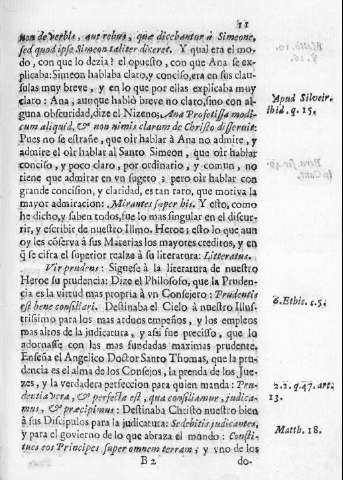 11
non de verbis, aut rebus, quæ dicebantur à Simeone,
sed quod ipse Simeon taliter diceret. Y qual era el mo-
do, con que lo dezia? el opuesto, con que Ana se ex-
plicaba: Simeon hablaba claro, y conciso, era en sus clau-
sulas muy breve, y en lo que por ellas explicaba muy
claro: Ana, aunque habló breve no claro, sino con al-
guna obscuridad, dize el Nizeno: Ana Profetissa modi-
cum aliquid, & non nimis clarum de Christo disseruit:
Pues no se estrañe, que oir hablar à Ana no admire, y
admire el oir hablar al Santo Simeon, que oir hablar
conciso, y poco claro, por ordinario, y comun, no
tiene que admirar en vn sugeto; pero oir hablar con
grande concision, y claridad, es tan raro, que motiva la
mayor admiracion: Mirantes super his. Y esto, como
he dicho, y saben todos, fue lo mas singular en el discur-
rir, y escribir de nuestro Illmo. Heroe; esto lo que aun
oy les cõserva à sus Materias los mayores creditos, y en
q̃ se cifra el superior realze à su literatura: Litteratus.
Vir prudens: Siguese à la literatura de nuestro
Heroe su prudencia: Dize el Philosofo, que la Pruden-
cia es la virtud mas propria à vn Consejero: Prudentis
est bene consiliari. Destinaba el Cielo à nuestro Illus-
trissimo para los mas arduos empeños, y los empleos
mas altos de la judicatura, y assi fue preciso, que lo
adornasse con las mas fundadas maximas prudente.
Enseña el Angelico Doctor Santo Thomas, que la pru-
dencia es el alma de los Consejos, la prenda de los Jue-
zes, y la verdadera perfeccion para quien manda: Pru-
dentia vera, & perfecta est, qua consiliamur, judica-
mus, & præcipimus: Destinaba Christo nuestro bien
à sus Discipulos para la judicatura: Sedebitis judicantes,
y para el govierno de lo que abraza el mundo: Consti-
tues eos Principes super omnem terram; y vno de los
B 2 do-
Apud Silveir.
ibid. q. 15.
6. Ethic. c. 5.
2. 2. q. 47. art.
13.
Matth. 18.